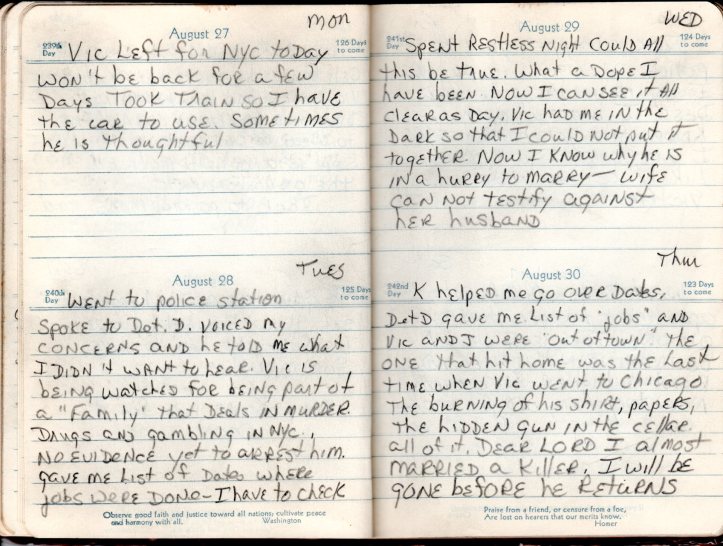 Mon
August 27
239th Day
126 Days to come
Vic Left for NYC today
won't be back for a few
Days Took Train so I have
the car to use. Sometimes
he is thoughtful
Tues
August 28
240th Day
125 Days to come
Went to police station
Spoke to Det. D. voiced my
concerns and he told me what
I didn't want to hear. Vic is
being watched for being part of
a "Family" that Deals in murder.
Drugs and gambling in NYC.,
No evidence yet to arrest him.
gave me List of Dates where
jobs were Done - I have to check
Observe good faith and justice toward all nations; cultivate peace
and harmony with all. Washington
WED
August 29
241st Day
124 Days to come
Spent Restless Night Could All
this be true. What a Dope I
have been. Now I can see it All
clear as Day. Vic had me in the
Dark so that I could not put it
together. Now I know why he is
in a hurry to marry— wife
can not testify against
her husband
Thur
August 30
242nd Day
123 Days to come
K helped me go over Dates,
Det D gave me List of "jobs" and
Vic and I were "out of town" The
one that hit home was the Last
time when Vic went to Chicago
The burning of his shirt, papers,
the hidden gun in the cellar.
all of it. Dear Lord I almost
married a killer. I will be
gone before he returns
Praise from a friend, or censure from a foe,
Are lost on hearers that our merits know.
Homer